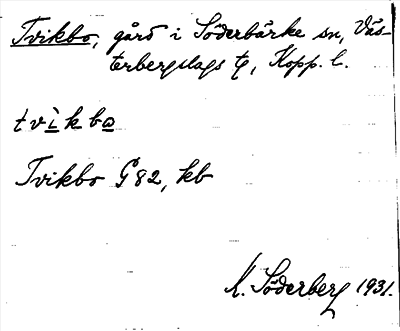 Tvikbo, gård i Söderbärke sn, Väs-
terbergslags tg, Kopp. l.
tvìkbo
Tvikbo G82, kb
K. Söderberg 1931.